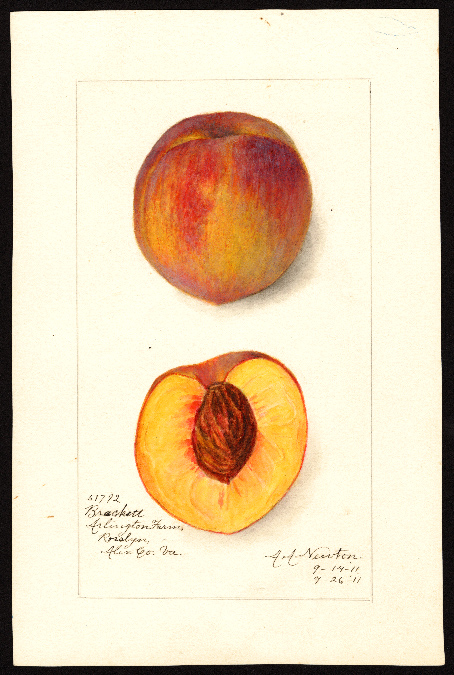 51792
Brackett
Arlington Farm,
Rosslyn,
Alex. Co. Va.
A.A. Newton.
9-14-11
7 26 '11